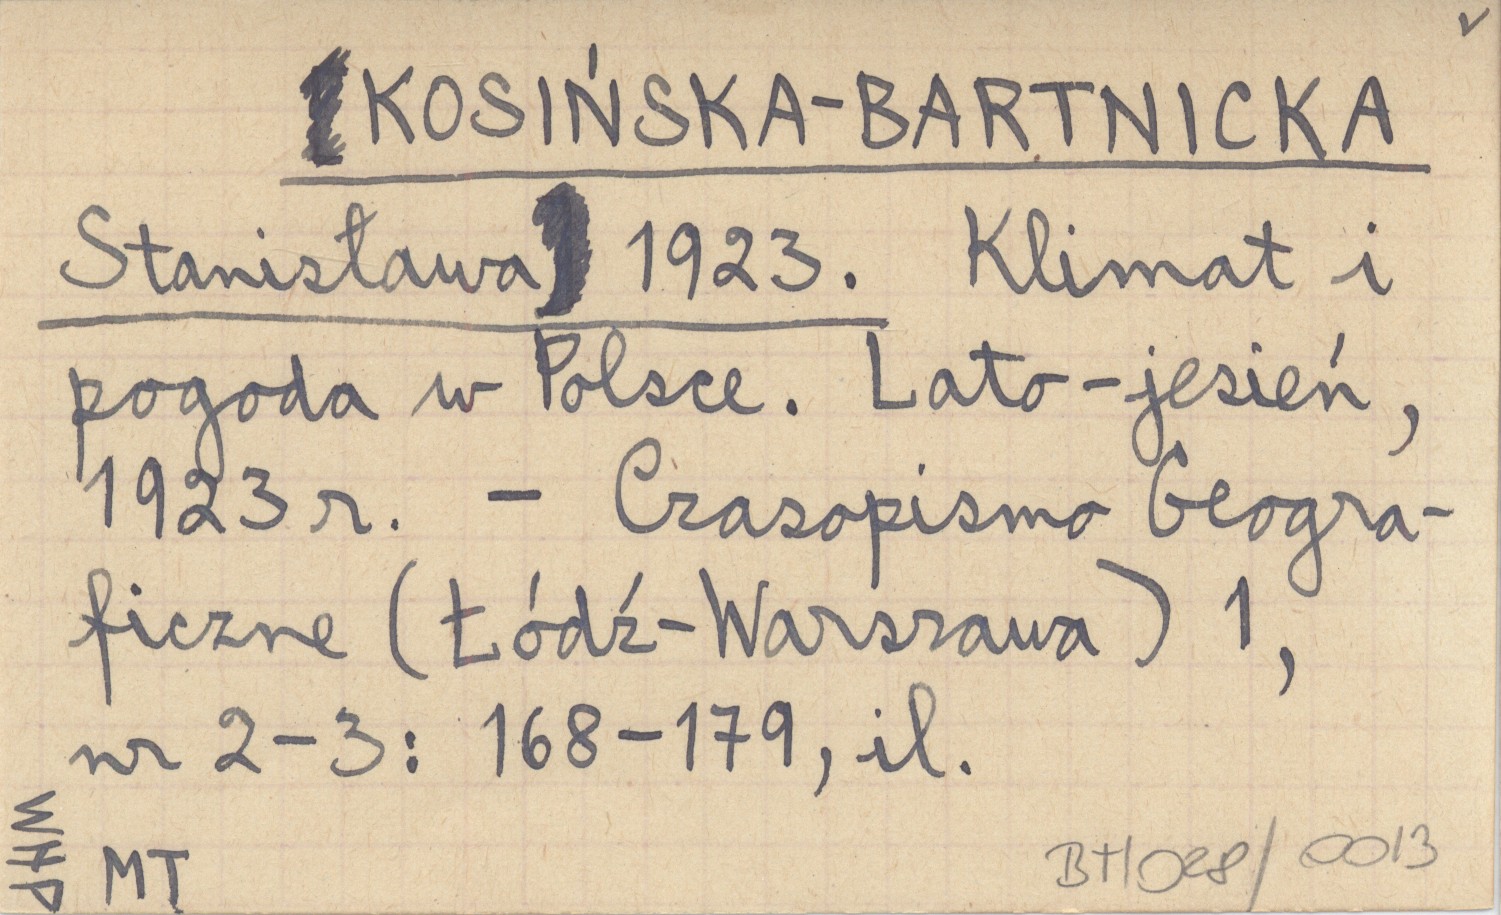 KOSIŃSKA-BARTNICKA
Stanisława 1923. Klimat i
pogoda w Polsce. Lato-jesień,
1923 r. – Czasopismo Geogra-
ficzne (Łódź-Warszawa) 1,
nr 2-3: 168-179, il.
WHP
MT
BH/028/0013